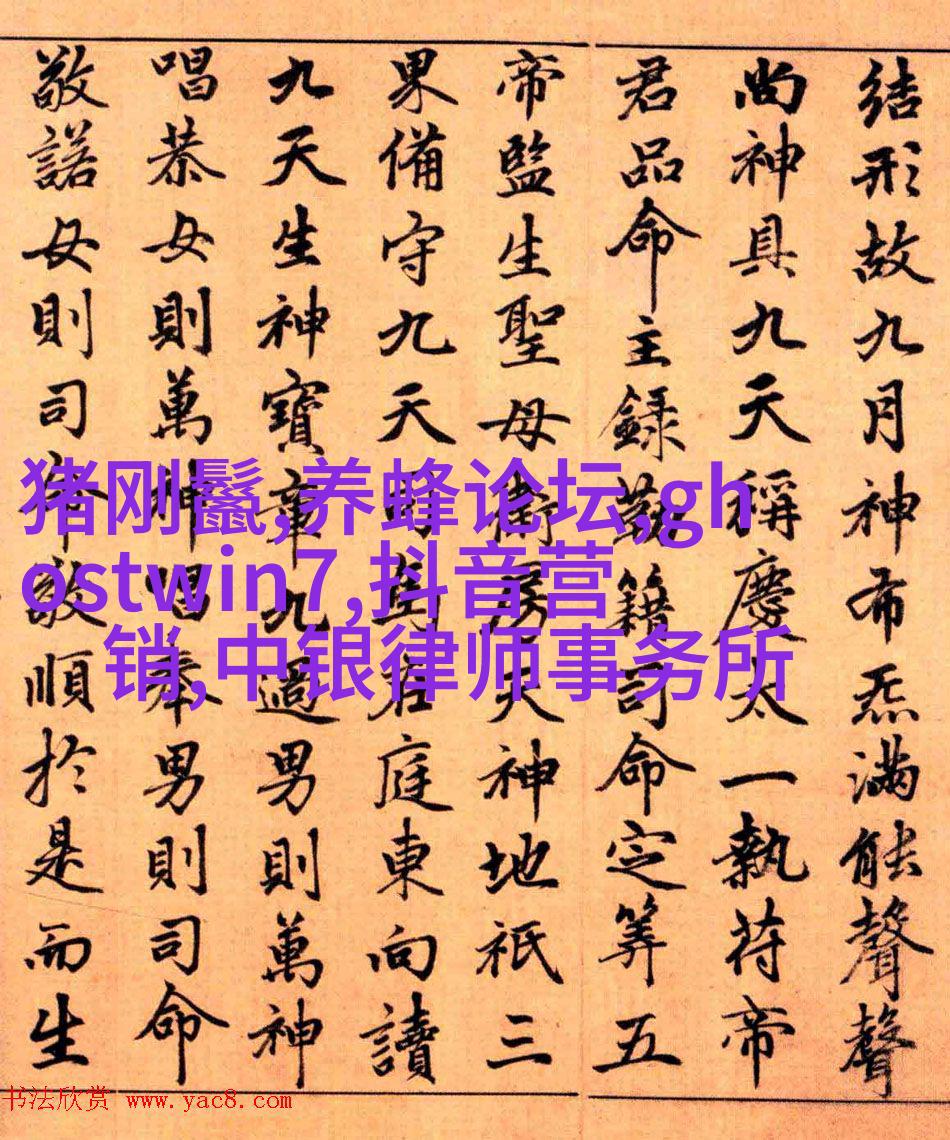 結形故九月神布炁滿能聲聲
尚神具九天稱慶太一執苻帝
君品命主錄勒籍司命定筭五
帝監生聖母衛房天神地祇三
果備守九天司馬在庭東向讀
九天生神寶章九過男則萬神
唱恭女則萬神唱奉男則司命
敬諾女則司命敬順於是而生
猪刚鬣,养蜂论坛,gh
ostwin7,抖音营
销,中银律师事务所
书法欣赏 www.yac8.com